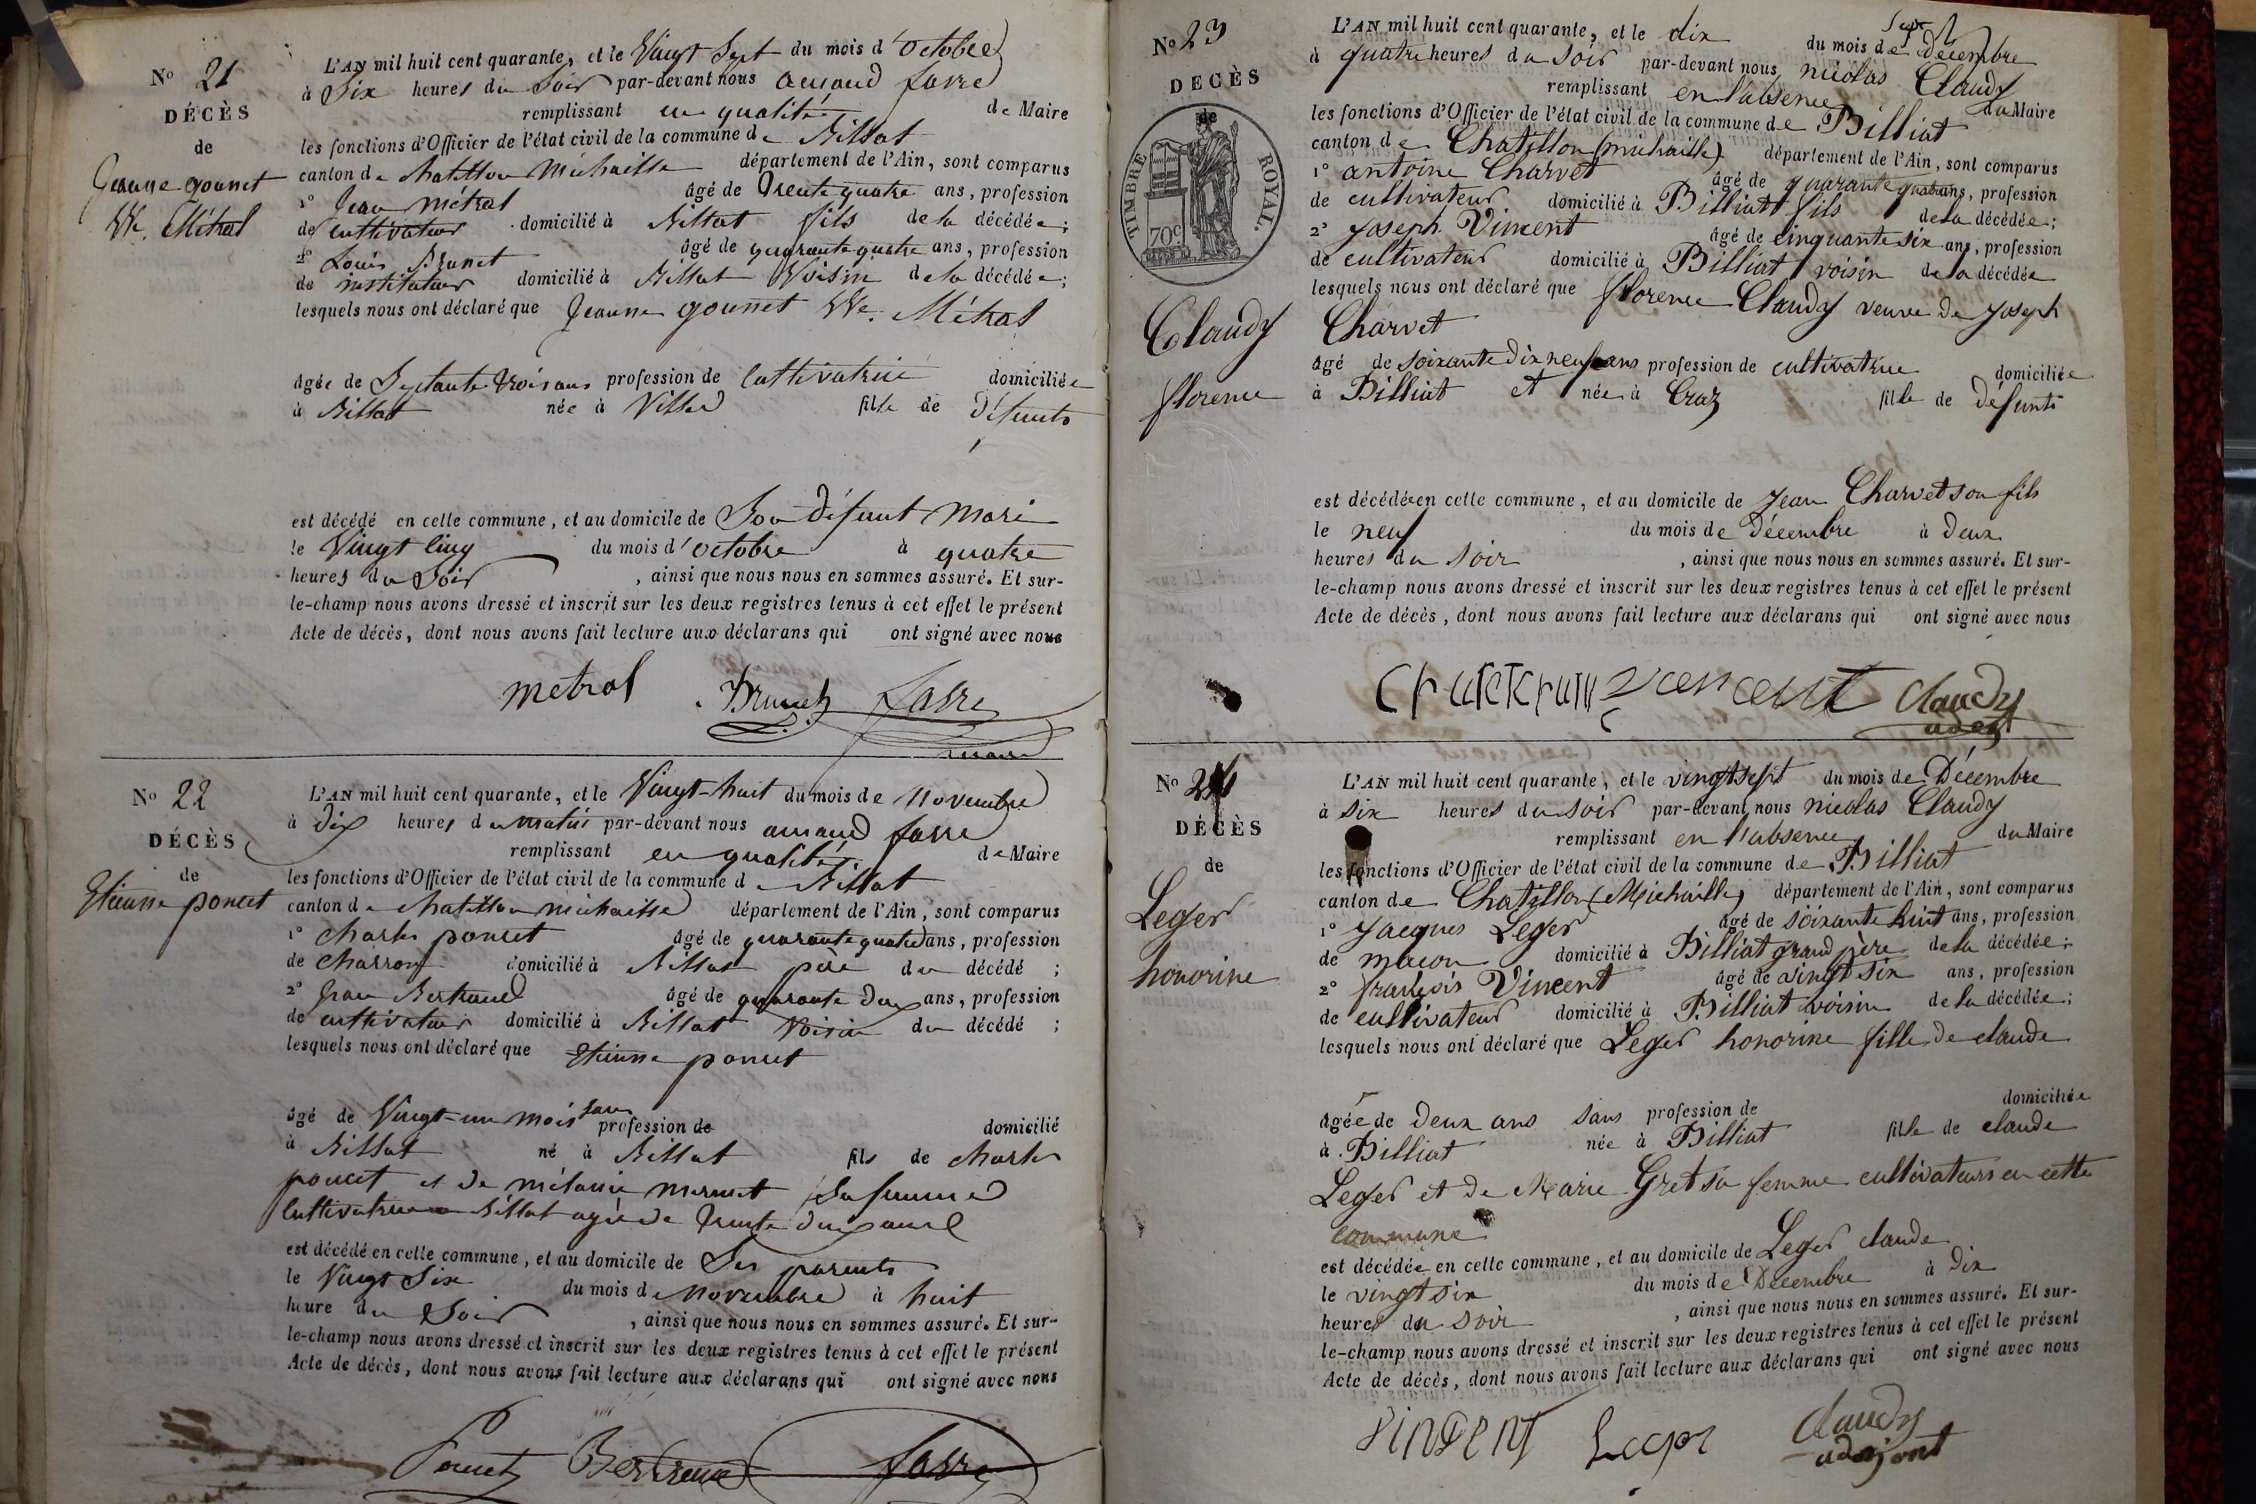 No 21
DÉCÈS
de
Jeanne gounet
Ve. Métral
L'AN mil huit cent quarante, et le Vingt Sept du mois d'octobre
à Six heures du Soir par-devant nous amand favre
remplissant en qualité de Maire
les fonctions d'Officier de l'état civil de la commune de Billiat
canton de chatillon Michaille département de l'Ain, sont comparus
1° Jean Métral âgé de Trente quatre ans, profession
de cultivateur domicilié à Billiat fils de la décédée;
2° Louis Brunet âgé de quarante quatre ans, profession
de instituteur domicilié à Billiat Voisin de la décédée;
lesquels nous ont déclaré que Jeanne gounet Ve. Métral
agée de Septante trois ans profession de Cultivatrice domiciliée
à Billiat née à Villed fille de défunts
est décédé en cette commune, et au domicile de Son défunt Mari
le Vingt Cinq du mois d'octobre à quatre
heures du Soir, ainsi que nous nous en sommes assuré. Et sur-
le-champ nous avons dressé et inscrit sur les deux registres tenus à cet effet le présent
Acte de décès, dont nous avons fait lecture aux déclarans qui ont signé avec nous
metral Brunet favre
maire
No 22
DÉCÈS
de
Etienne poncet
L'AN mil huit cent quarante, et le Vingt-huit du mois de novembre
à dix heures du matin par-devant nous amand favre
remplissant en qualité de Maire
les fonctions d'Officier de l'état civil de la commune de Billiat
canton de chatillon michaille département de l'Ain, sont comparus
1° charles poncet âgé de quarante quatre ans, profession
de charron domicilié à Billiat père du décédé;
2° Jean Bertrand âgé de quarante deux ans, profession
de cultivateur domicilié à Billiat Voisin du décédé;
lesquels nous ont déclaré que Etienne poncet
agé de Vingt-un mois sans profession de domicilié
à Billiat né à Billiat fils de charles
poncet et de mélanie mermet Sa femme
Cultivatrice a Billiat agée de Trente deux ans
est décédé en cette commune, et au domicile de Ses parents
le Vingt Six du mois de Novembre à huit
heure du Soir, ainsi que nous nous en sommes assuré. Et sur-
le-champ nous avons dressé et inscrit sur les deux registres tenus à cet effet le présent
Acte de décès, dont nous avons fait lecture aux déclarans qui ont signé avec nous
Poncet Bertrand favre
No 23
DECÈS
de
TIMBRE ROYAL.
70c
Claudy
florence
L'AN mil huit cent quarante, et le dix du mois de décembre
à quatre heures du soir par-devant nous nicolas Claudy
remplissant en l'absence du Maire
les fonctions d'Officier de l'état civil de la commune de Billiat
canton de Chatillon (michaille) département de l'Ain, sont comparus
1° antoine Charvet âgé de quarante quatre ans, profession
de cultivateur domicilié à Billiat fils de la décédée;
2° Joseph Vincent âgé de cinquante six ans, profession
de cultivateur domicilié à Billiat voisin de la décédée
lesquels nous ont déclaré que florence Claudy veuve de Joseph
Charvet
agé de soixante dix neuf ans profession de cultivatrice domiciliée
à Billiat et née à Craz fille de défunts
est décédée en cette commune, et au domicile de Jean Charvet son fils
le neuf du mois de Décembre à deux
heures du soir, ainsi que nous nous en sommes assuré. Et sur-
le-champ nous avons dressé et inscrit sur les deux registres tenus à cet effet le présent
Acte de décès, dont nous avons fait lecture aux déclarans qui ont signé avec nous
vencent Claudy
adgt
No 24
DÉCÈS
de
Leger
honorine
L'AN mil huit cent quarante, et le vingt sept du mois de Décembre
à six heures du soir par-devant nous nicolas Claudy
remplissant en l'absence du Maire
les fonctions d'Officier de l'état civil de la commune de Billiat
canton de Chatillon (Michaille) département de l'Ain, sont comparus
1° Jacques Leger âgé de soixante huit ans, profession
de macon domicilié à Billiat grand père de la décédée;
2° françois Vincent âgé de vingt six ans, profession
de cultivateur domicilié à Billiat voisin de la décédée;
lesquels nous ont déclaré que Leger honorine fille de claude
agée de deux ans sans profession de domiciliée
à Billiat née à Billiat fille de claude
Leger et de Marie Gret sa femme cultivateurs en cette
commune
est décédée en cette commune, et au domicile de Leger claude
le vingt six du mois de Décembre à dix
heures du soir, ainsi que nous nous en sommes assuré. Et sur-
le-champ nous avons dressé et inscrit sur les deux registres tenus à cet effet le présent
Acte de décès, dont nous avons fait lecture aux déclarans qui ont signé avec nous
vincent Leger Claudy
adojont